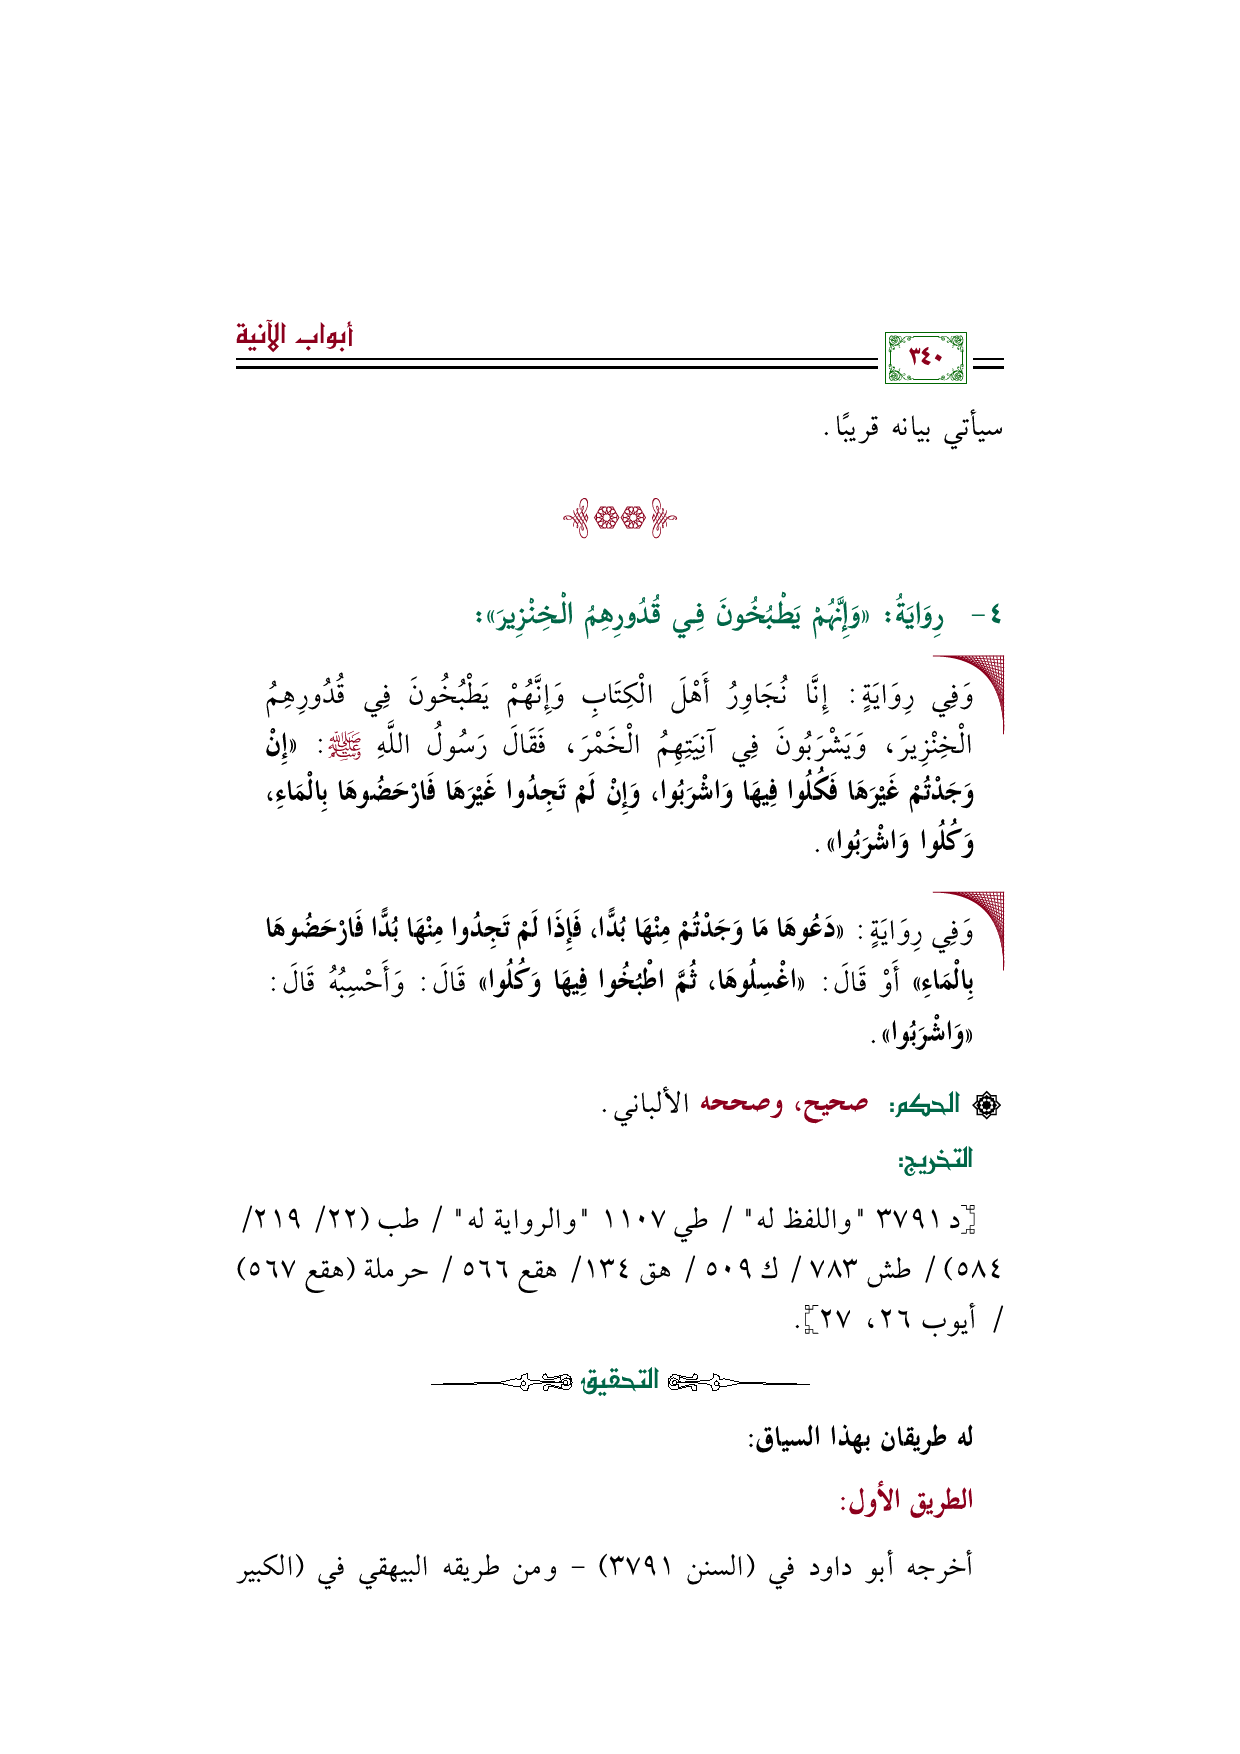 أبواب الآنية
٣٤٠
سيأتي بيانه قريبًا.
٤- رِوَايَةُ: «وَإِنَّهُمْ يَطْبُخُونَ فِي قُدُورِهِمُ الْخِنْزِيرَ»:
وَفِي رِوَايَةٍ: إِنَّا نُجَاوِرُ أَهْلَ الْكِتَابِ وَإِنَّهُمْ يَطْبُخُونَ فِي قُدُورِهِمُ
الْخِنْزِيرَ، وَيَشْرَبُونَ فِي آنِيَتِهِمُ الْخَمْرَ، فَقَالَ رَسُولُ اللَّهِ ﷺ: «إِنْ
وَجَدْتُمْ غَيْرَهَا فَكُلُوا فِيهَا وَاشْرَبُوا، وَإِنْ لَمْ تَجِدُوا غَيْرَهَا فَارْحَضُوهَا بِالْمَاءِ،
وَكُلُوا وَاشْرَبُوا».
وَفِي رِوَايَةٍ: «دَعُوهَا مَا وَجَدْتُمْ مِنْهَا بُدًّا، فَإِذَا لَمْ تَجِدُوا مِنْهَا بُدًّا فَارْحَضُوهَا
بِالْمَاءِ» أَوْ قَالَ: «اغْسِلُوهَا، ثُمَّ اطْبُخُوا فِيهَا وَكُلُوا» قَالَ: وَأَحْسِبُهُ قَالَ:
«وَاشْرَبُوا».
الحكم: صحيح، وصححه الألباني.
التخريج:
[د ٣٧٩١ "واللفظ له" / طي ١١٠٧ "والرواية له" / طب (٢٢/ ٢١٩/
٥٨٤) / طش ٧٨٣ / ك ٥٠٩ / هق ١٣٤/ هقع ٥٦٦ / حرملة (هقع ٥٦٧)
/ أيوب ٢٦، ٢٧].
التحقيق
له طريقان بهذا السياق:
الطريق الأول:
أخرجه أبو داود في (السنن ٣٧٩١) - ومن طريقه البيهقي في (الكبير